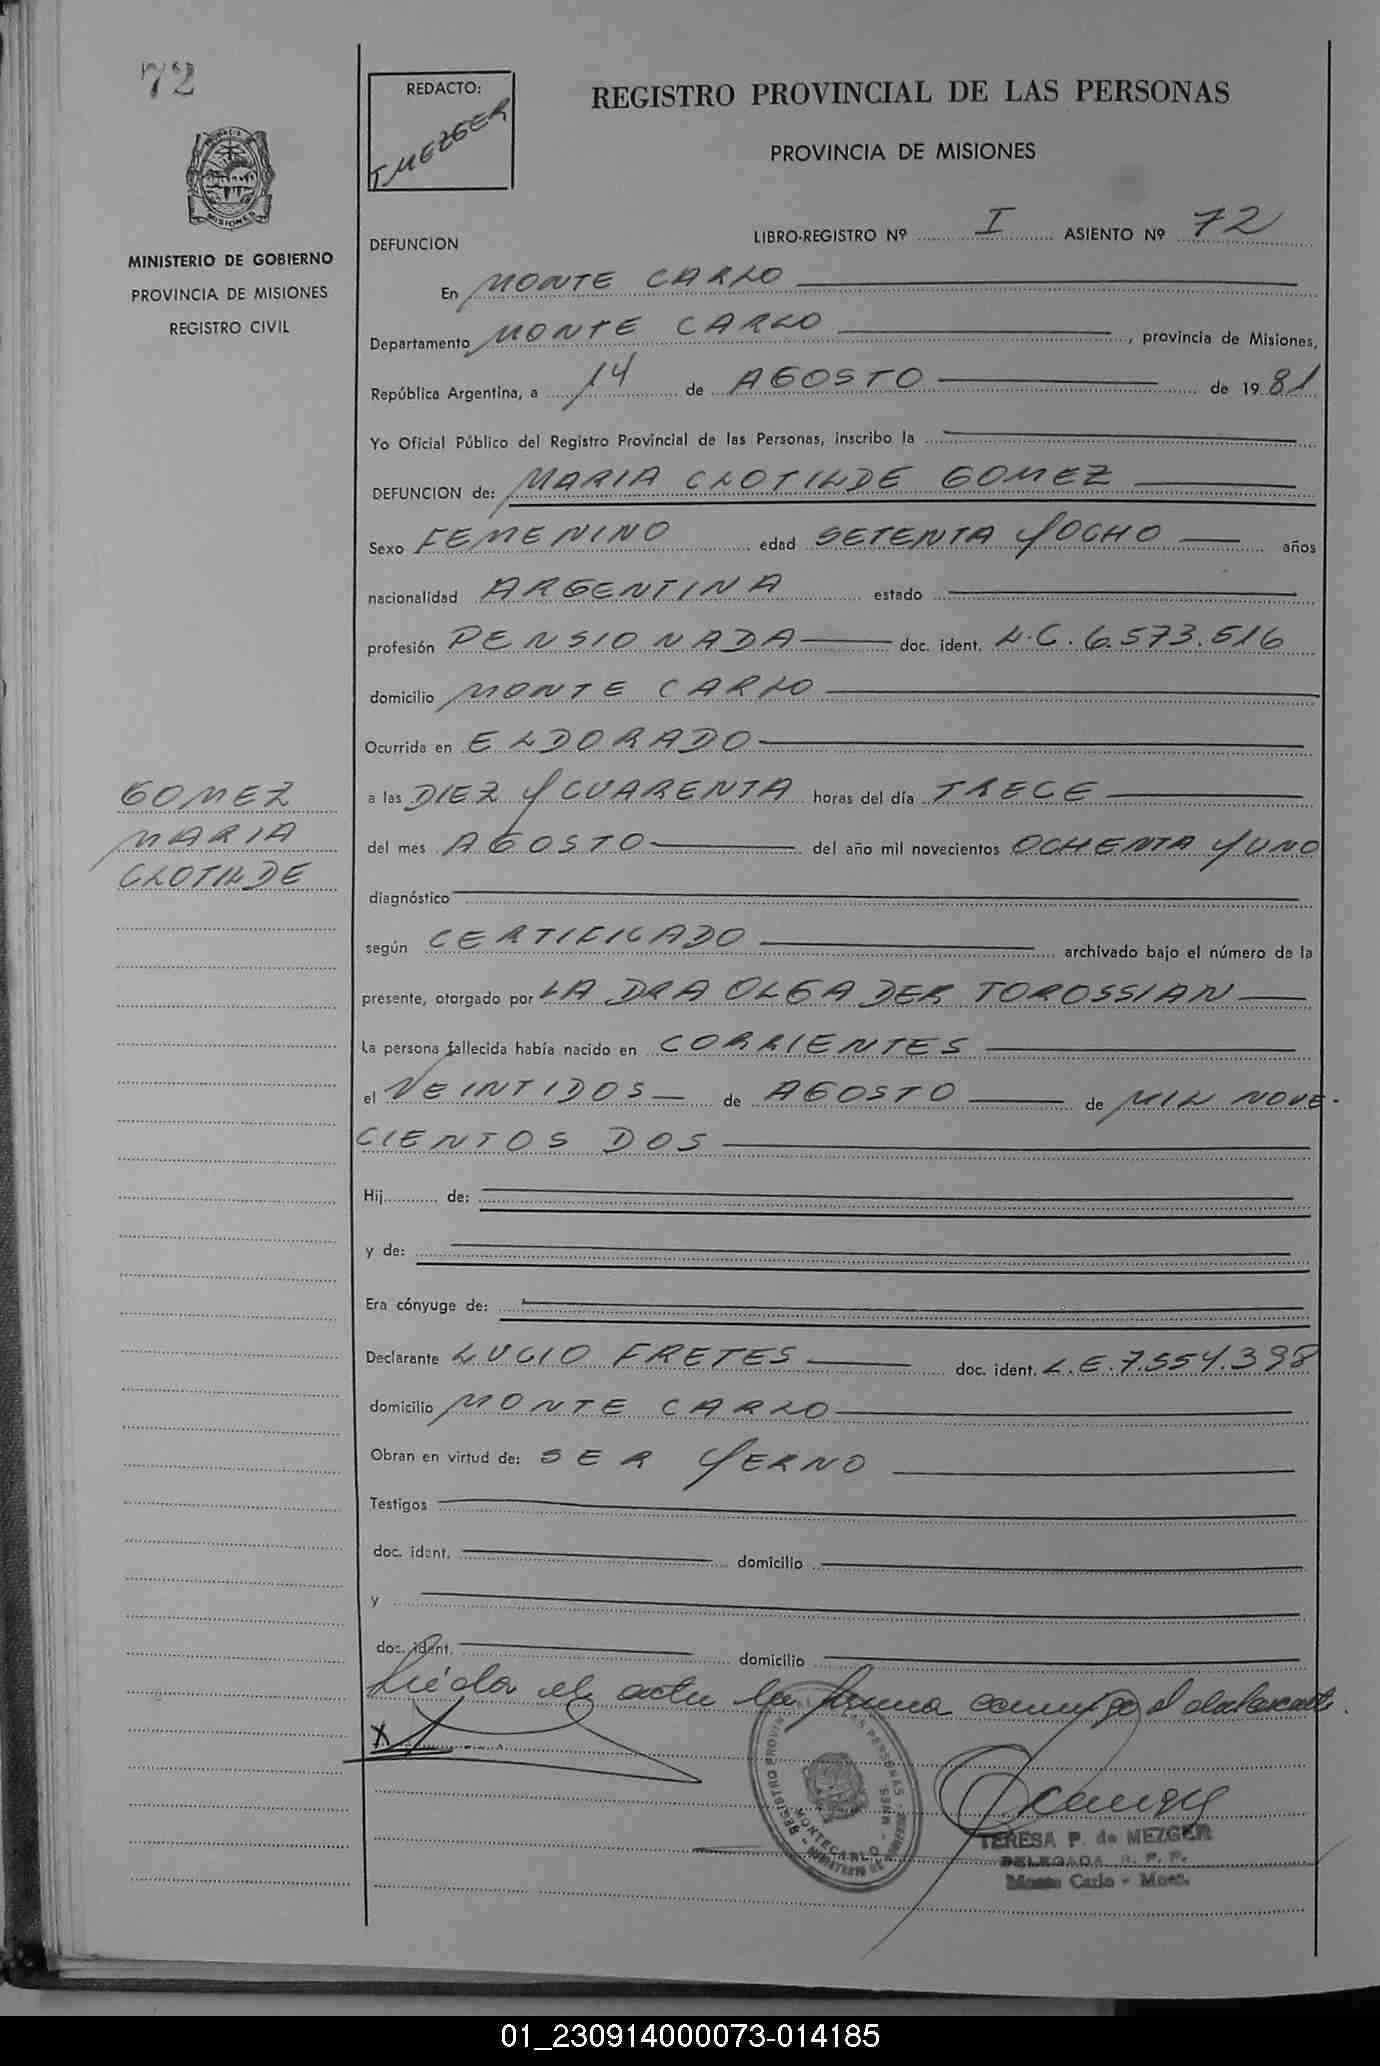 72
REDACTO:
T. MEZGER
REGISTRO PROVINCIAL DE LAS PERSONAS
PROVINCIA DE MISIONES
MISIONES
MINISTERIO DE GOBIERNO
PROVINCIA DE MISIONES
REGISTRO CIVIL
DEFUNCION
LIBRO-REGISTRO Nº I ASIENTO Nº 72
En MONTE CARLO
Departamento MONTE CARLO, provincia de Misiones,
República Argentina, a 14 de AGOSTO de 1981
Yo Oficial Público del Registro Provincial de las Personas, inscribo la
DEFUNCION de: MARIA CLOTILDE GOMEZ
Sexo FEMENINO edad SETENTA Y OCHO años
nacionalidad ARGENTINA estado
profesión PENSIONADA doc. ident. L.C. 6.573.516
domicilio MONTE CARLO
Ocurrida en ELDORADO
GOMEZ
MARIA
CLOTILDE
a las DIEZ Y CUARENTA horas del día TRECE
del mes AGOSTO del año mil novecientos OCHENTA Y UNO
diagnóstico
según CERTIFICADO archivado bajo el número de la
presente, otorgado por LA DRA OLGA DER TOROSSIAN
La persona fallecida había nacido en CORRIENTES
el VEINTIDOS de AGOSTO de MIL NOVE-
CIENTOS DOS
Hij de:
y de:
Era cónyuge de:
Declarante LUCIO FRETES doc. ident. L.E. 7.554.398
domicilio MONTE CARLO
Obran en virtud de: SER YERNO
Testigos
doc. ident. domicilio
y
doc. ident. domicilio
Leída el acta la firma conmigo el declarante.
X
REGISTRO PROVINCIAL DE LAS PERSONAS
MONTECARLO - MNES.
TERESA P. de MEZGER
DELEGADA R. P. P.
Monte Carlo - Mnes.
01_230914000073-014185